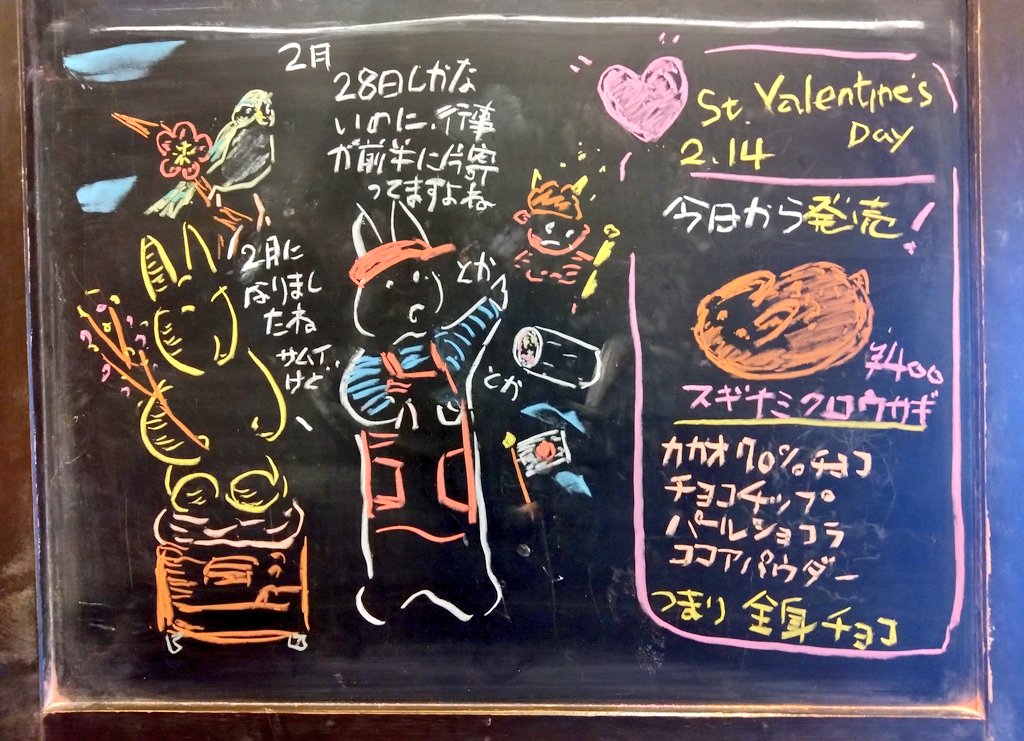 2月
28日しかな
いのに、行事
が前半に片寄
ってますよね
とか
とか
2月に
なりまし
たね
サムイ
けど
St. Valentine's
Day
2.14
今日から発売!
¥400
スギナミクロウサギ
カカオ70%チョコ
チョコチップ
パールショコラ
ココアパウダー
つまり全身チョコ